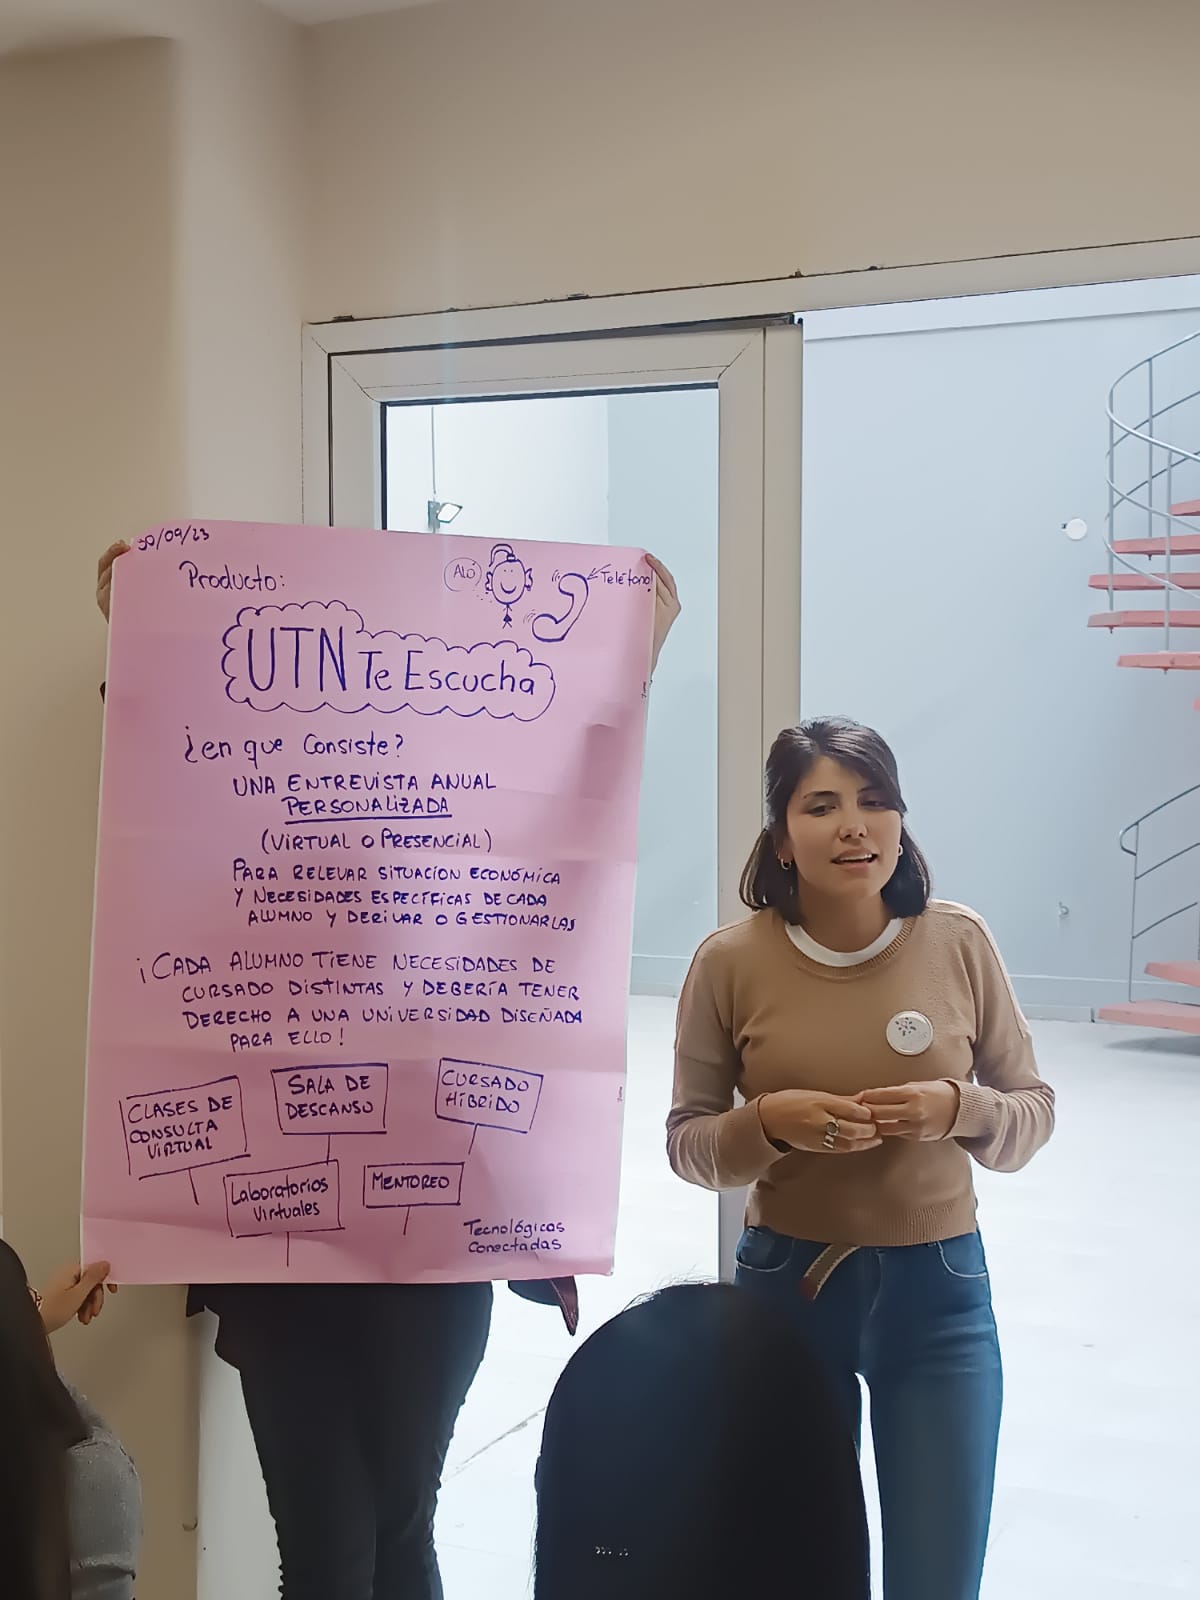 30/09/23
Producto:
Aló
Teléfono!
UTN Te Escucha
¿en que Consiste?
UNA ENTREVISTA ANUAL
PERSONALIZADA
(VIRTUAL O PRESENCIAL)
PARA RELEVAR SITUACION ECONÓMICA
Y NECESIDADES ESPECÍFICAS DE CADA
ALUMNO Y DERIVAR O GESTIONARLAS
¡CADA ALUMNO TIENE NECESIDADES DE
CURSADO DISTINTAS Y DEBERÍA TENER
DERECHO A UNA UNIVERSIDAD DISEÑADA
PARA ELLO!
CLASES DE
CONSULTA
VIRTUAL
SALA DE
DESCANSO
CURSADO
HÍBRIDO
Laboratorios
Virtuales
MENTOREO
Tecnológicas
Conectadas